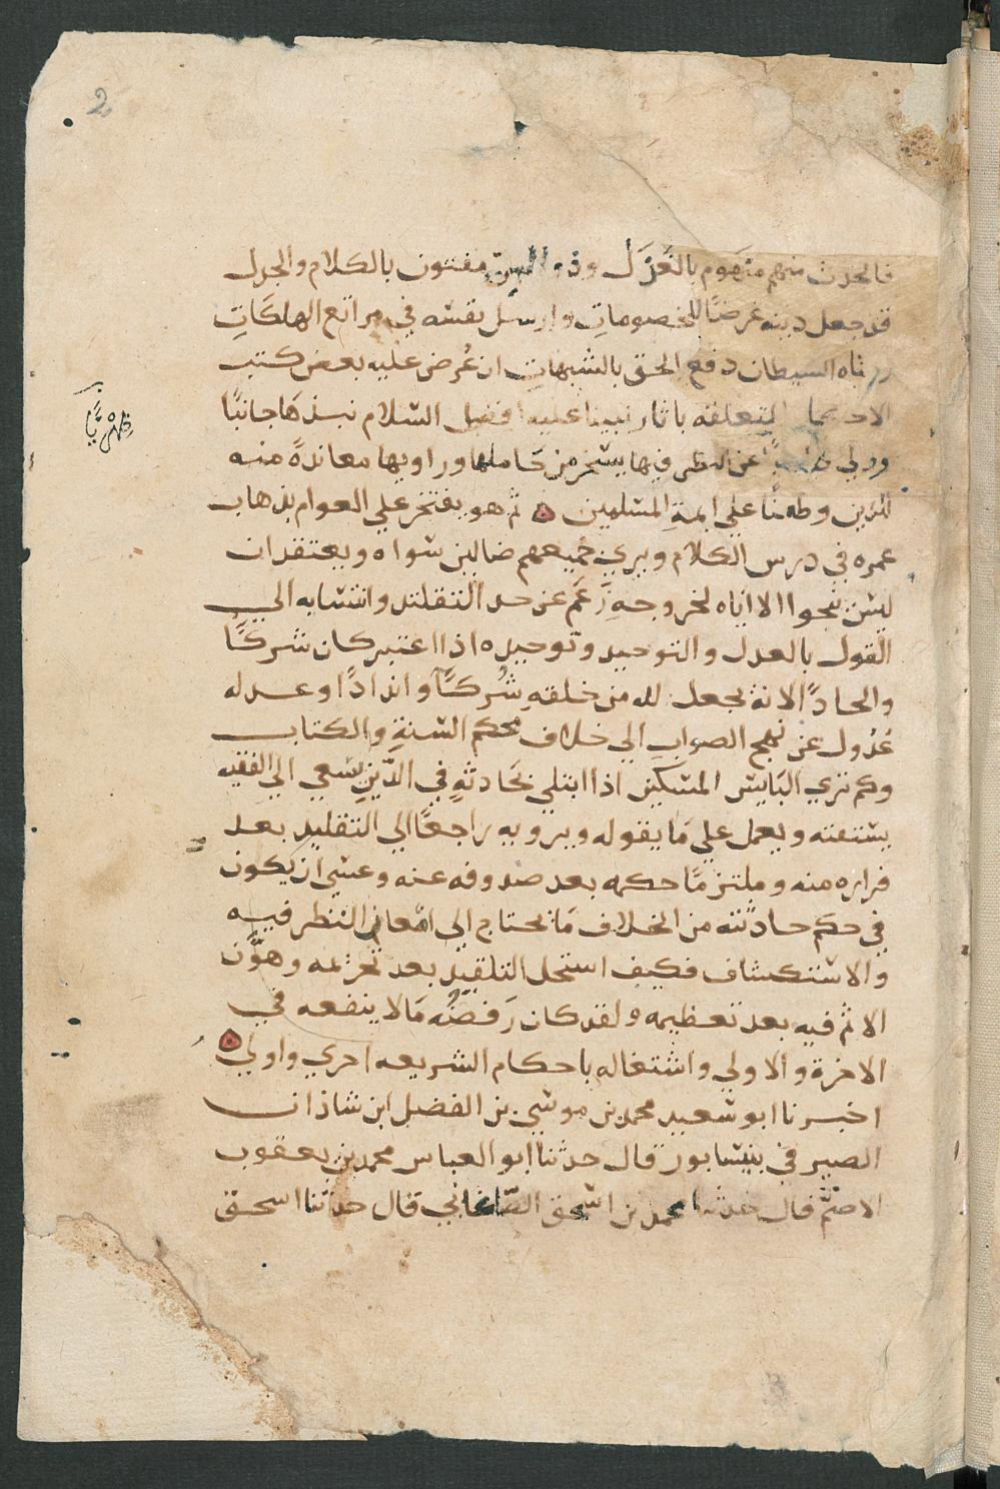 2
فالحدث منهم متهوم بالغَزَل وذو السن مفتون بالكلام والجدل
قد جعل دينه غرضًا للخصوماتِ وارسل نفسه في مراتع الهلكَاتِ
ومناه الشيطان دفع الحق بالشبهاتِ ان عُرض عليه بعض كتب
الاحكام المتعلقة باثار نبينا عليه افضل السلام نبذهَا جانبًا
وولى ذاهبًا عن النظر فيها يسخر من حَاملها وراويها معاندةً منه
للدين وطعنًا علي ايمة المسلمين ثم هو يفتخر علي العوام بذهاب
عمره في درس الكلام ويري جميعهم ضالين سواه ويعتقد ان
ليس ينجوا الا اياه لخروجهِ زَعَم عن حد التقليد وانتسابه الي
القول بالعدل والتوحيد وتوحيده اذا اعتبر كان شركًا
والحادًا لانه يجعل لله من خلقهِ شُركآ واندادًا وعدله
عُدُول عن نهج الصوابِ الي خلاف محكم السنةِ والكتاب
وكم نري البَايس المسكين اذا ابتلي بحَادثةٍ في الدّينِ يسعي الي الفقيه
يستفته ويعمل علي مَا يقوله ويرويه راجعًا الي التقليد بعد
فراره منه وملتزمًا حكمه بعد صدوفه عنه وعسي ان يكون
في حكم حادثته من الخلاف مَا يحتاج الي امعان النظر فيه
والاستكشاف فكيف استحل التقليد بعد تحريمه وهوَّن
الاثم فيه بعد تعظيمه ولقد كان رَفضُه مَا لا ينفعه في
الاخرة والاولي واشتغاله باحكام الشريعه احري واولي
اخبرنا ابو سعيد محمد بن موسي بن الفضل ابن شاذان
الصيرفي بنيسابور قال حدثنا ابو العباس محمد بن يعقوب
الاصمّ قال حدثنا محمد بن اسحق الصّاغاني قال حدثنا اسحق